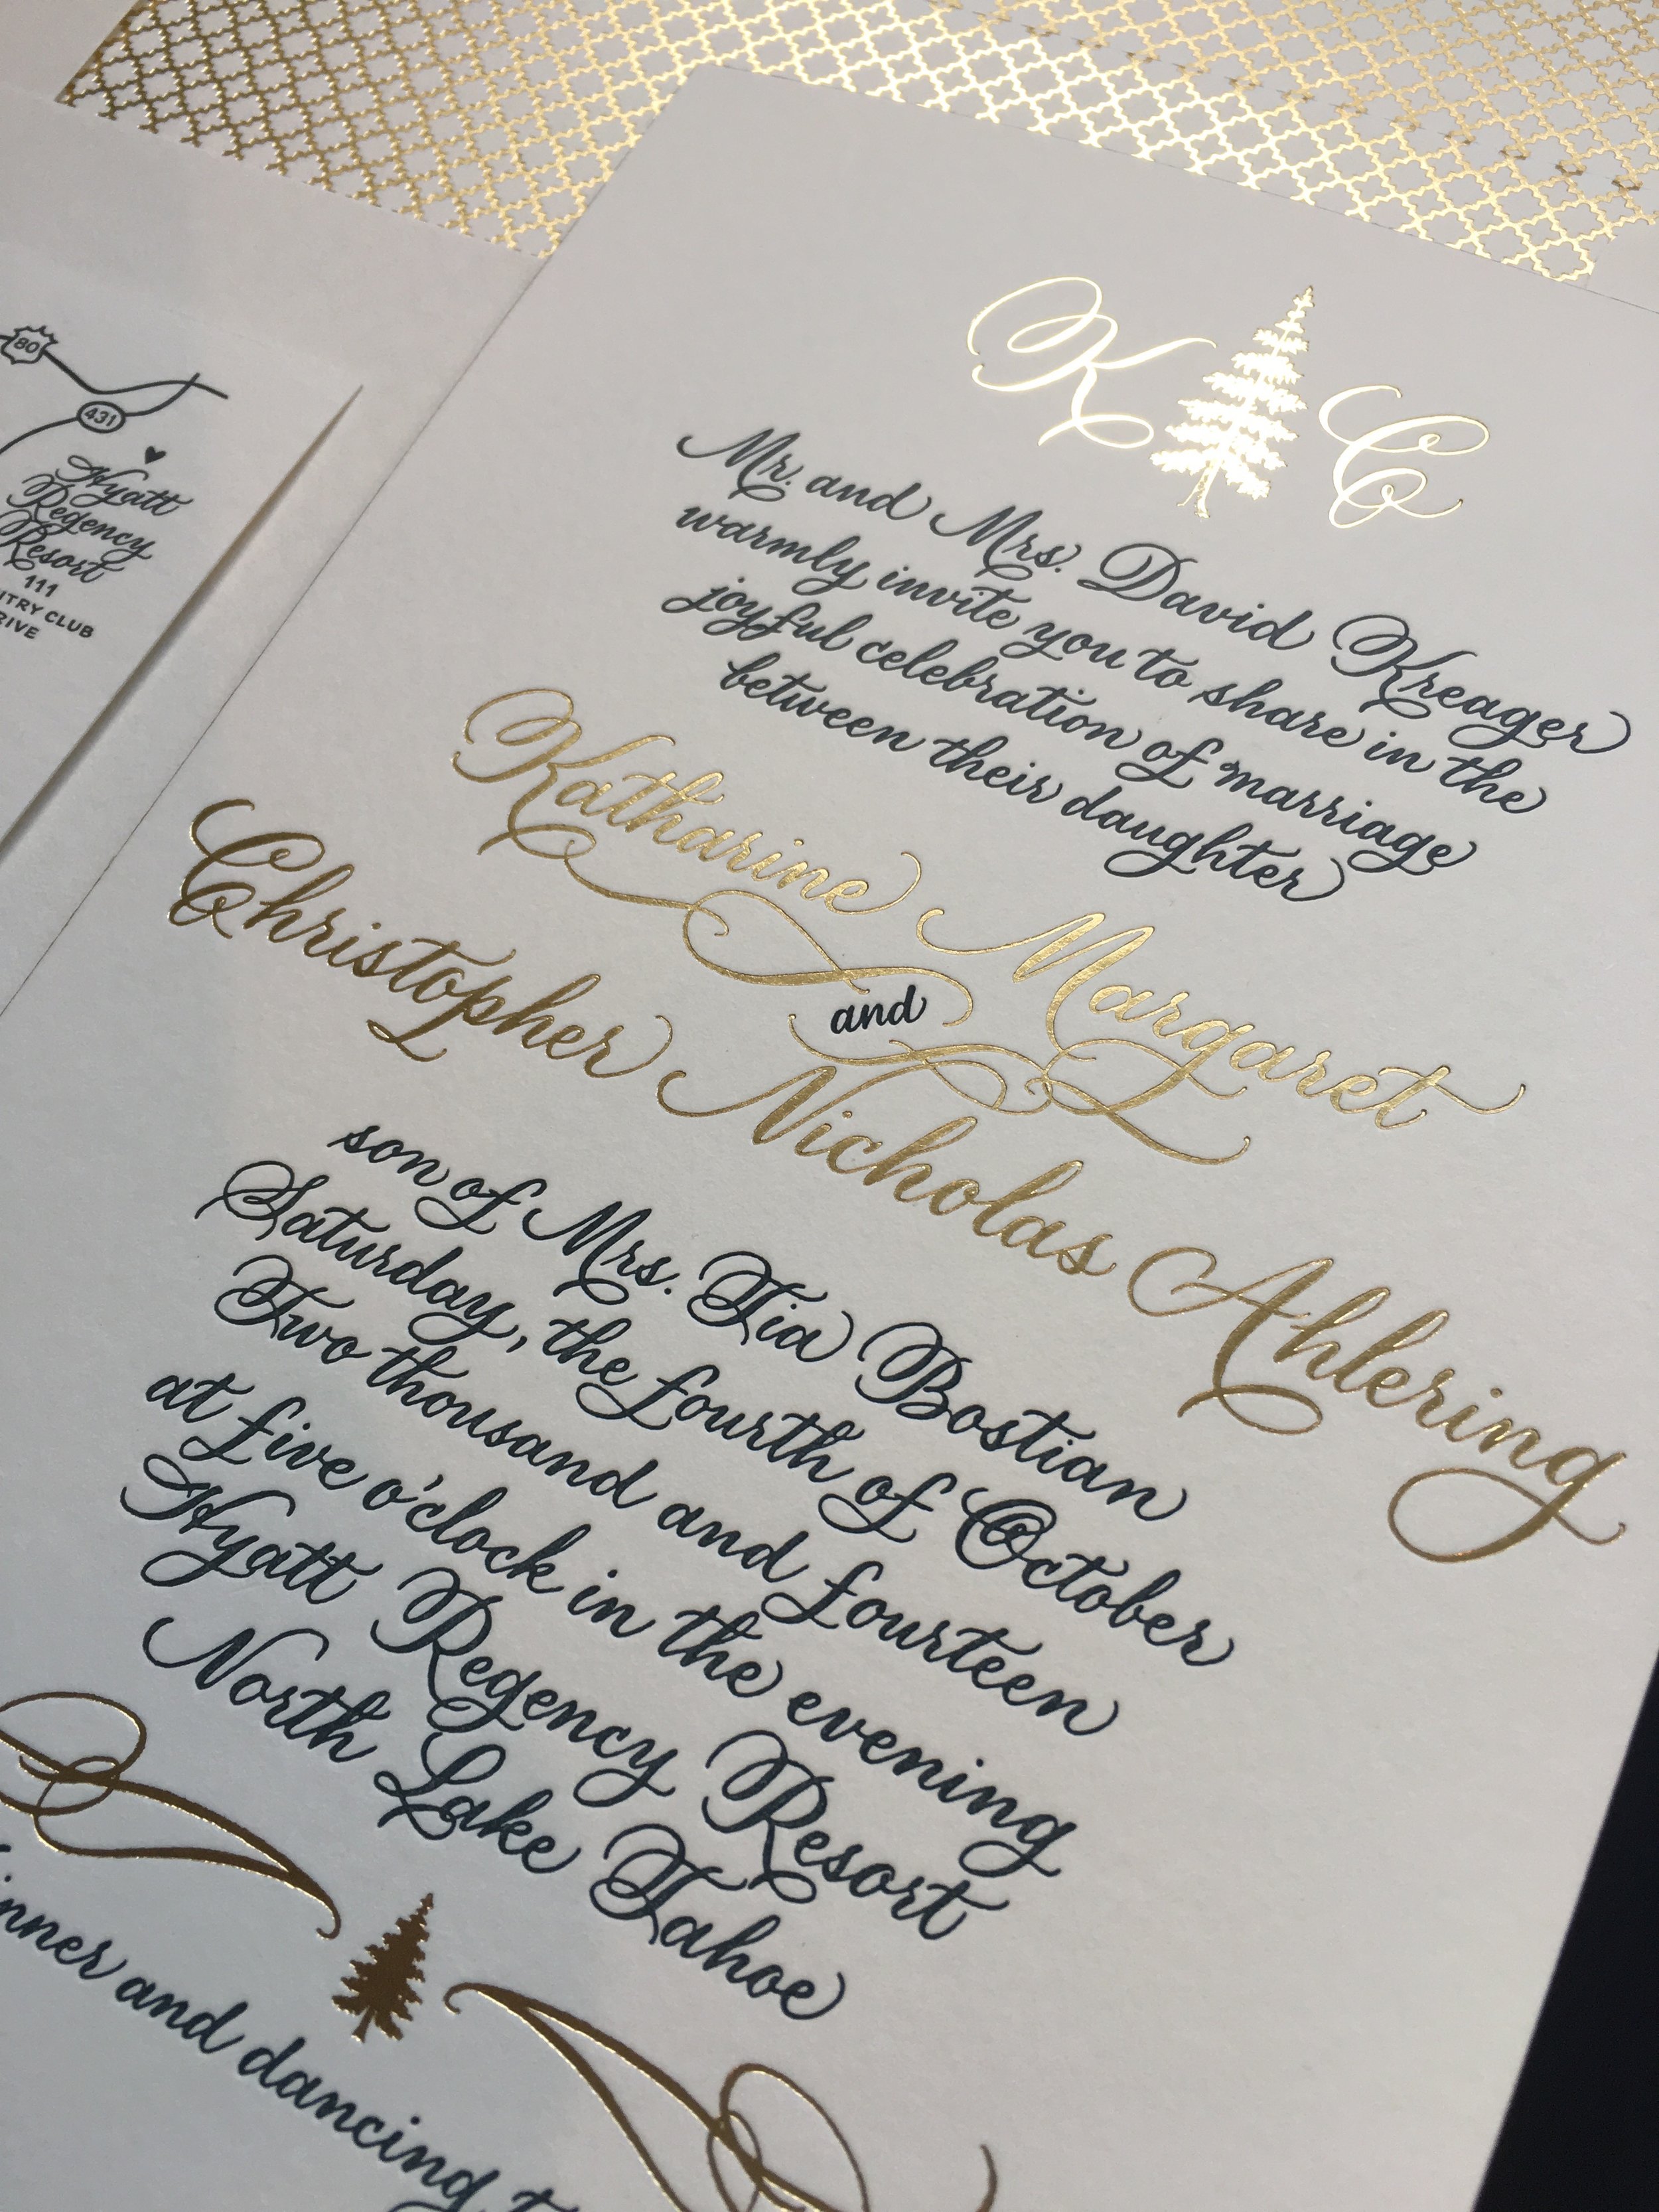 80
431
Hyatt
Regency
Resort
111
K C
Mr. and Mrs. David Kreager
warmly invite you to share in the
joyful celebration of marriage
between their daughter
Katharine Margaret
and
Christopher Nicholas Ahlering
son of Mrs. Tia Bostian
Saturday, the fourth of October
Two thousand and fourteen
at five o'clock in the evening
Hyatt Regency Resort
North Lake Tahoe
and dancing